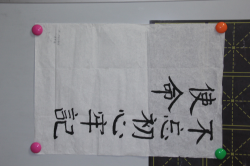 不忘初心牢記
使命